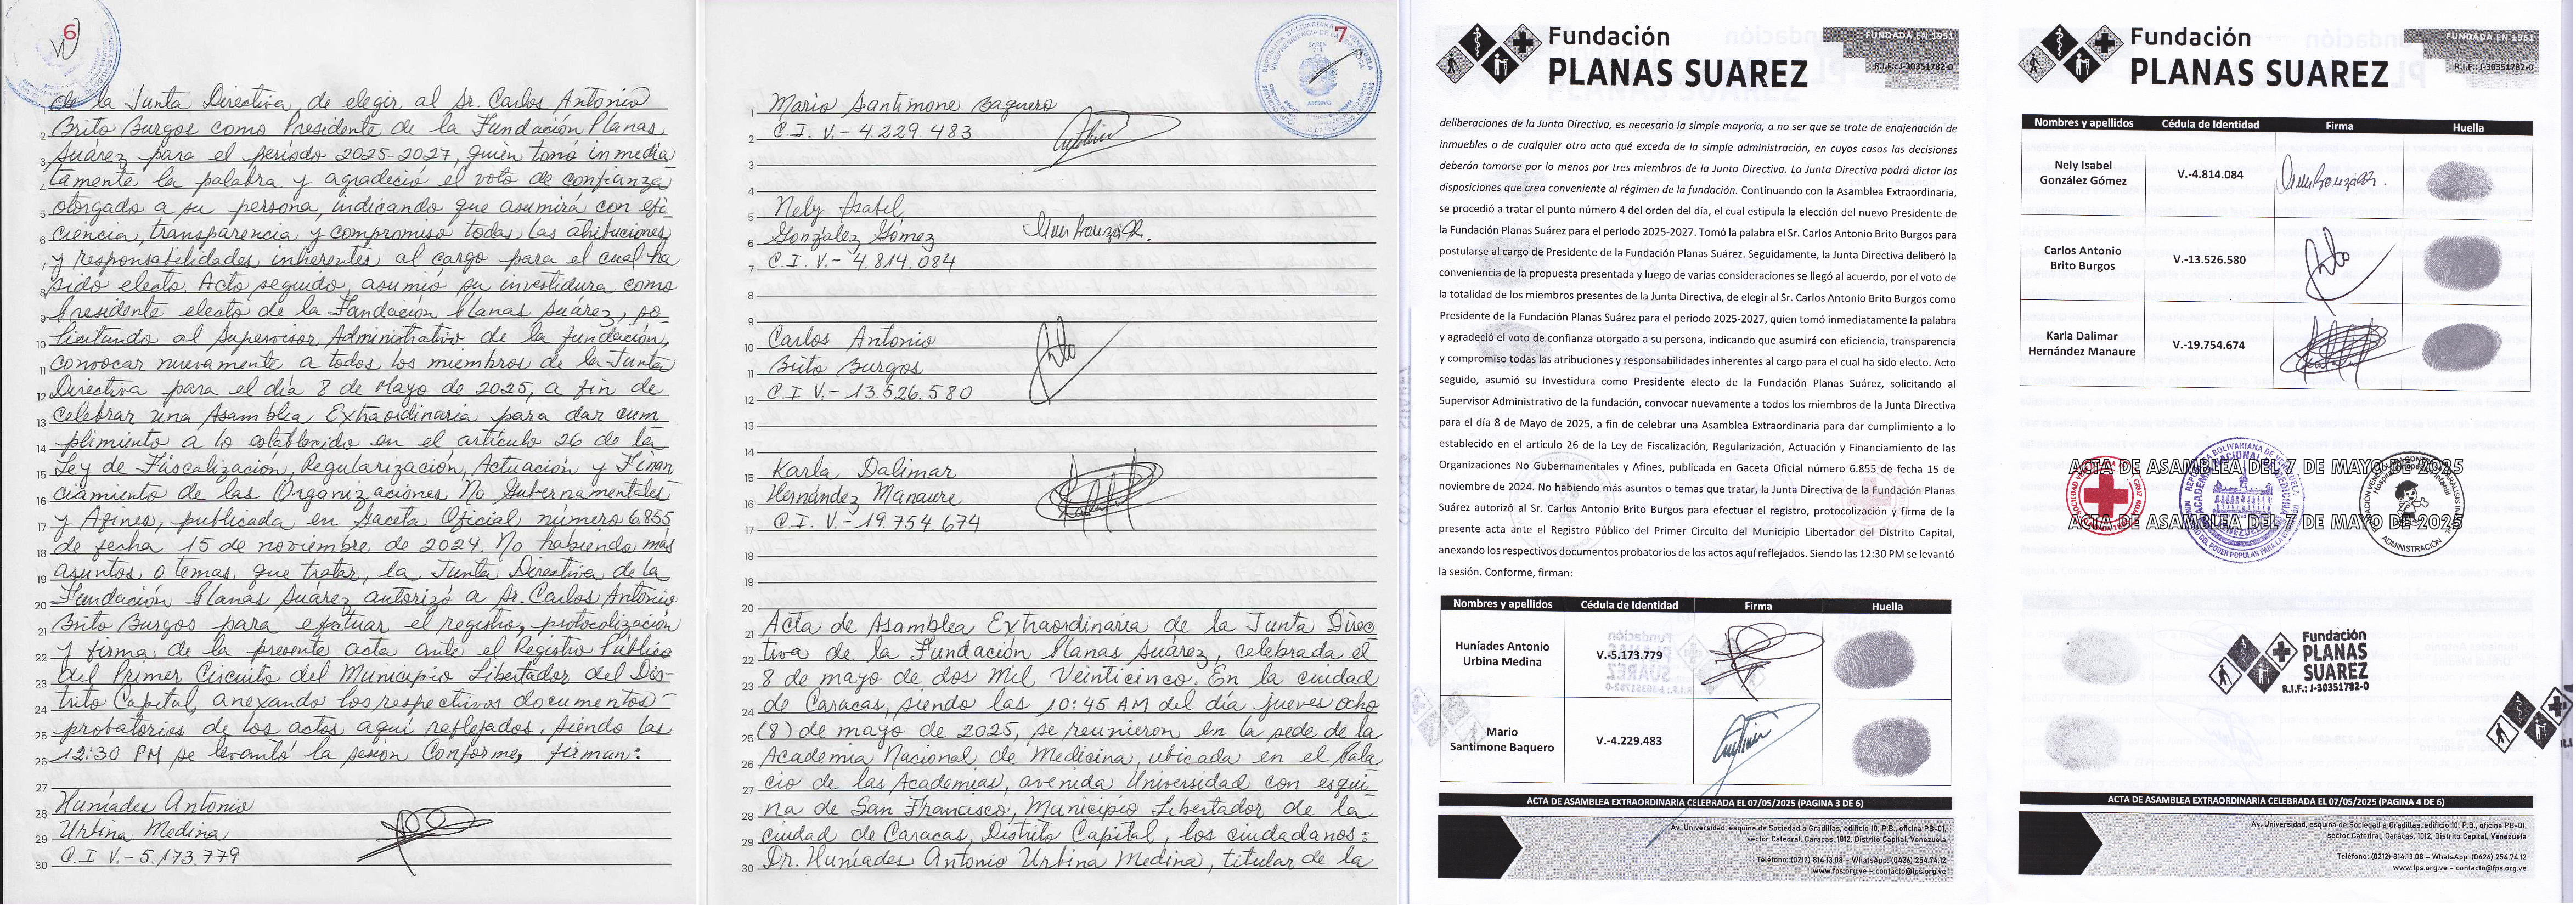 6
de la Junta Directiva, de elegir al Sr. Carlos Antonio
Brito Burgos como Presidente de la Fundación Planas
Suárez para el período 2025-2027, quien tomó inmedia
tamente la palabra y agradeció el voto de confianza
otorgado a su persona, indicando que asumirá con efi-
ciencia, transparencia y compromiso todas las atribuciones
y responsabilidades inherentes al cargo para el cual ha
sido electo. Acto seguido, asumió su investidura como
Presidente electo de la Fundación Planas Suárez, so-
licitando al Supervisor Administrativo de la fundación,
convocar nuevamente a todos los miembros de la Junta
Directiva para el día 8 de Mayo de 2025, a fin de
celebrar una Asamblea Extraordinaria para dar cum
plimiento a lo establecido en el artículo 26 de la
Ley de Fiscalización, Regularización, Actuación y Finan
ciamiento de las Organizaciones No Gubernamentales
y Afines, publicada en Gaceta Oficial número 6.855
de fecha 15 de noviembre de 2024. No habiendo más
asuntos o temas que tratar, la Junta Directiva de la
Fundación Planas Suárez autorizó a Sr. Carlos Antonio
Brito Burgos para efectuar el registro, protocolización
y firma de la presente acta ante el Registro Público
del Primer Circuito del Municipio Libertador del Dis-
trito Capital, anexando los respectivos documentos
probatorios de los actos aquí reflejados. Siendo las
12:30 PM se levantó la sesión Conforme, firman:
Huníades Antonio
Urbina Medina
C.I V.- 5.173.779
7
Mario Santimone Baquero
C.I. V.- 4.229.483
Nely Isabel
González Gómez
C.I. V.- 4.814.084
Carlos Antonio
Brito Burgos
C.I V.- 13.526.580
Karla Dalimar
Hernández Manaure
C.I. V.- 19.754.674
Acta de Asamblea Extraordinaria de la Junta Direc
tiva de la Fundación Planas Suárez, celebrada el
8 de mayo de dos Mil Veinticinco. En la ciudad
de Caracas, siendo las 10:45 AM del día jueves ocho
(8) de mayo de 2025, se reunieron en la sede de la
Academia Nacional de Medicina, ubicada en el Pala
cio de las Academias, avenida Universidad con esqui
na de San Francisco, Municipio Libertador de la
ciudad de Caracas, Distrito Capital, los ciudadanos:
Dr. Huníades Antonio Urbina Medina, titular de la
Fundación
PLANAS SUAREZ
FUNDADA EN 1951
R.I.F.: J-30351782-0
deliberaciones de la Junta Directiva, es necesario la simple mayoría, a no ser que se trate de enajenación de
inmuebles o de cualquier otro acto qué exceda de la simple administración, en cuyos casos las decisiones
deberán tomarse por lo menos por tres miembros de la Junta Directiva. La Junta Directiva podrá dictar las
disposiciones que crea conveniente al régimen de la fundación. Continuando con la Asamblea Extraordinaria,
se procedió a tratar el punto número 4 del orden del día, el cual estipula la elección del nuevo Presidente de
la Fundación Planas Suárez para el periodo 2025-2027. Tomó la palabra el Sr. Carlos Antonio Brito Burgos para
postularse al cargo de Presidente de la Fundación Planas Suárez. Seguidamente, la Junta Directiva deliberó la
conveniencia de la propuesta presentada y luego de varias consideraciones se llegó al acuerdo, por el voto de
la totalidad de los miembros presentes de la Junta Directiva, de elegir al Sr. Carlos Antonio Brito Burgos como
Presidente de la Fundación Planas Suárez para el periodo 2025-2027, quien tomó inmediatamente la palabra
y agradeció el voto de confianza otorgado a su persona, indicando que asumirá con eficiencia, transparencia
y compromiso todas las atribuciones y responsabilidades inherentes al cargo para el cual ha sido electo. Acto
seguido, asumió su investidura como Presidente electo de la Fundación Planas Suárez, solicitando al
Supervisor Administrativo de la fundación, convocar nuevamente a todos los miembros de la Junta Directiva
para el día 8 de Mayo de 2025, a fin de celebrar una Asamblea Extraordinaria para dar cumplimiento a lo
establecido en el artículo 26 de la Ley de Fiscalización, Regularización, Actuación y Financiamiento de las
Organizaciones No Gubernamentales y Afines, publicada en Gaceta Oficial número 6.855 de fecha 15 de
noviembre de 2024. No habiendo más asuntos o temas que tratar, la Junta Directiva de la Fundación Planas
Suárez autorizó al Sr. Carlos Antonio Brito Burgos para efectuar el registro, protocolización y firma de la
presente acta ante el Registro Público del Primer Circuito del Municipio Libertador del Distrito Capital,
anexando los respectivos documentos probatorios de los actos aquí reflejados. Siendo las 12:30 PM se levantó
la sesión. Conforme, firman:
Nombres y apellidos Cédula de Identidad Firma Huella
Huníades Antonio
Urbina Medina V.-5.173.779
Mario
Santimone Baquero V.-4.229.483
ACTA DE ASAMBLEA EXTRAORDINARIA CELEBRADA EL 07/05/2025 (PAGINA 3 DE 6)
Av. Universidad, esquina de Sociedad a Gradillas, edificio 10, P.B., oficina PB-01,
sector Catedral, Caracas, 1012, Distrito Capital, Venezuela
Teléfono: (0212) 814.13.08 – WhatsApp: (0426) 254.74.12
www.fps.org.ve – contacto@fps.org.ve
Fundación
PLANAS SUAREZ
FUNDADA EN 1951
R.I.F.: J-30351782-0
Nombres y apellidos Cédula de Identidad Firma Huella
Nely Isabel
González Gómez V.-4.814.084
Carlos Antonio
Brito Burgos V.-13.526.580
Karla Dalimar
Hernández Manaure V.-19.754.674
ACTA DE ASAMBLEA DEL 7 DE MAYO DE 2025
ACTA DE ASAMBLEA DEL 7 DE MAYO DE 2025
ADMINISTRACIÓN
Fundación
PLANAS
SUAREZ
R.I.F.: J-30351782-0
ACTA DE ASAMBLEA EXTRAORDINARIA CELEBRADA EL 07/05/2025 (PAGINA 4 DE 6)
Av. Universidad, esquina de Sociedad a Gradillas, edificio 10, P.B., oficina PB-01,
sector Catedral, Caracas, 1012, Distrito Capital, Venezuela
Teléfono: (0212) 814.13.08 – WhatsApp: (0426) 254.74.12
www.fps.org.ve – contacto@fps.org.ve